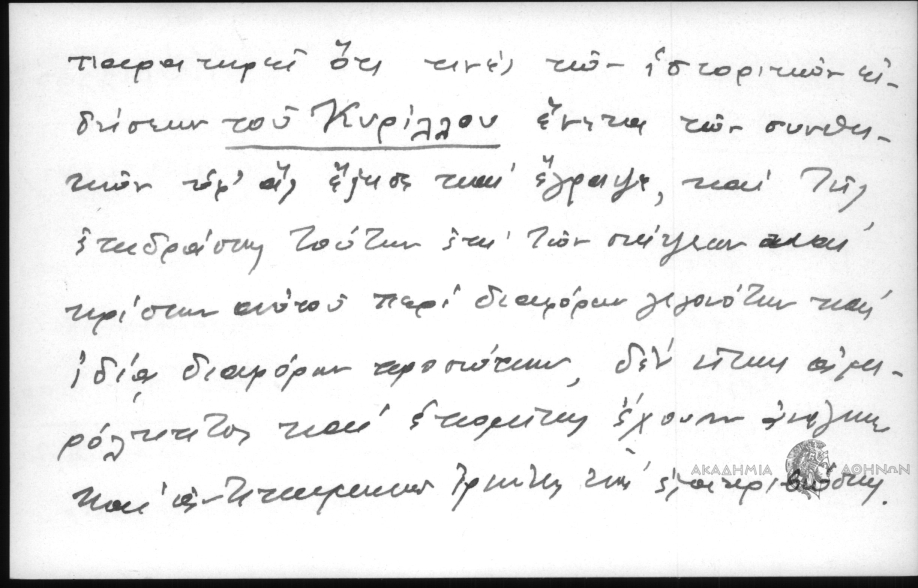 παρατηρεῖ ὅτι τινὲς τῶν ἱστορικῶν εἰ-
δήσεων τοῦ Κυρίλλου ἕνεκα τῶν συνθη-
κῶν ὑφ' ἃς ἔζησε καὶ ἔγραψε, καὶ τῆς
ἐπιδράσεως τούτων ἐπὶ τῶν σκέψεων καὶ
κρίσεων αὐτοῦ περὶ διαφόρων γεγονότων καὶ
ἰδίᾳ διαφόρων προσώπων, δὲν εἶναι ἀμε-
ρόληπτος καὶ ἑπομένως ἔχουν ἀνάγκην
καὶ
ΑΚΑΔΗΜΙΑ ΑΘΗΝΩΝ